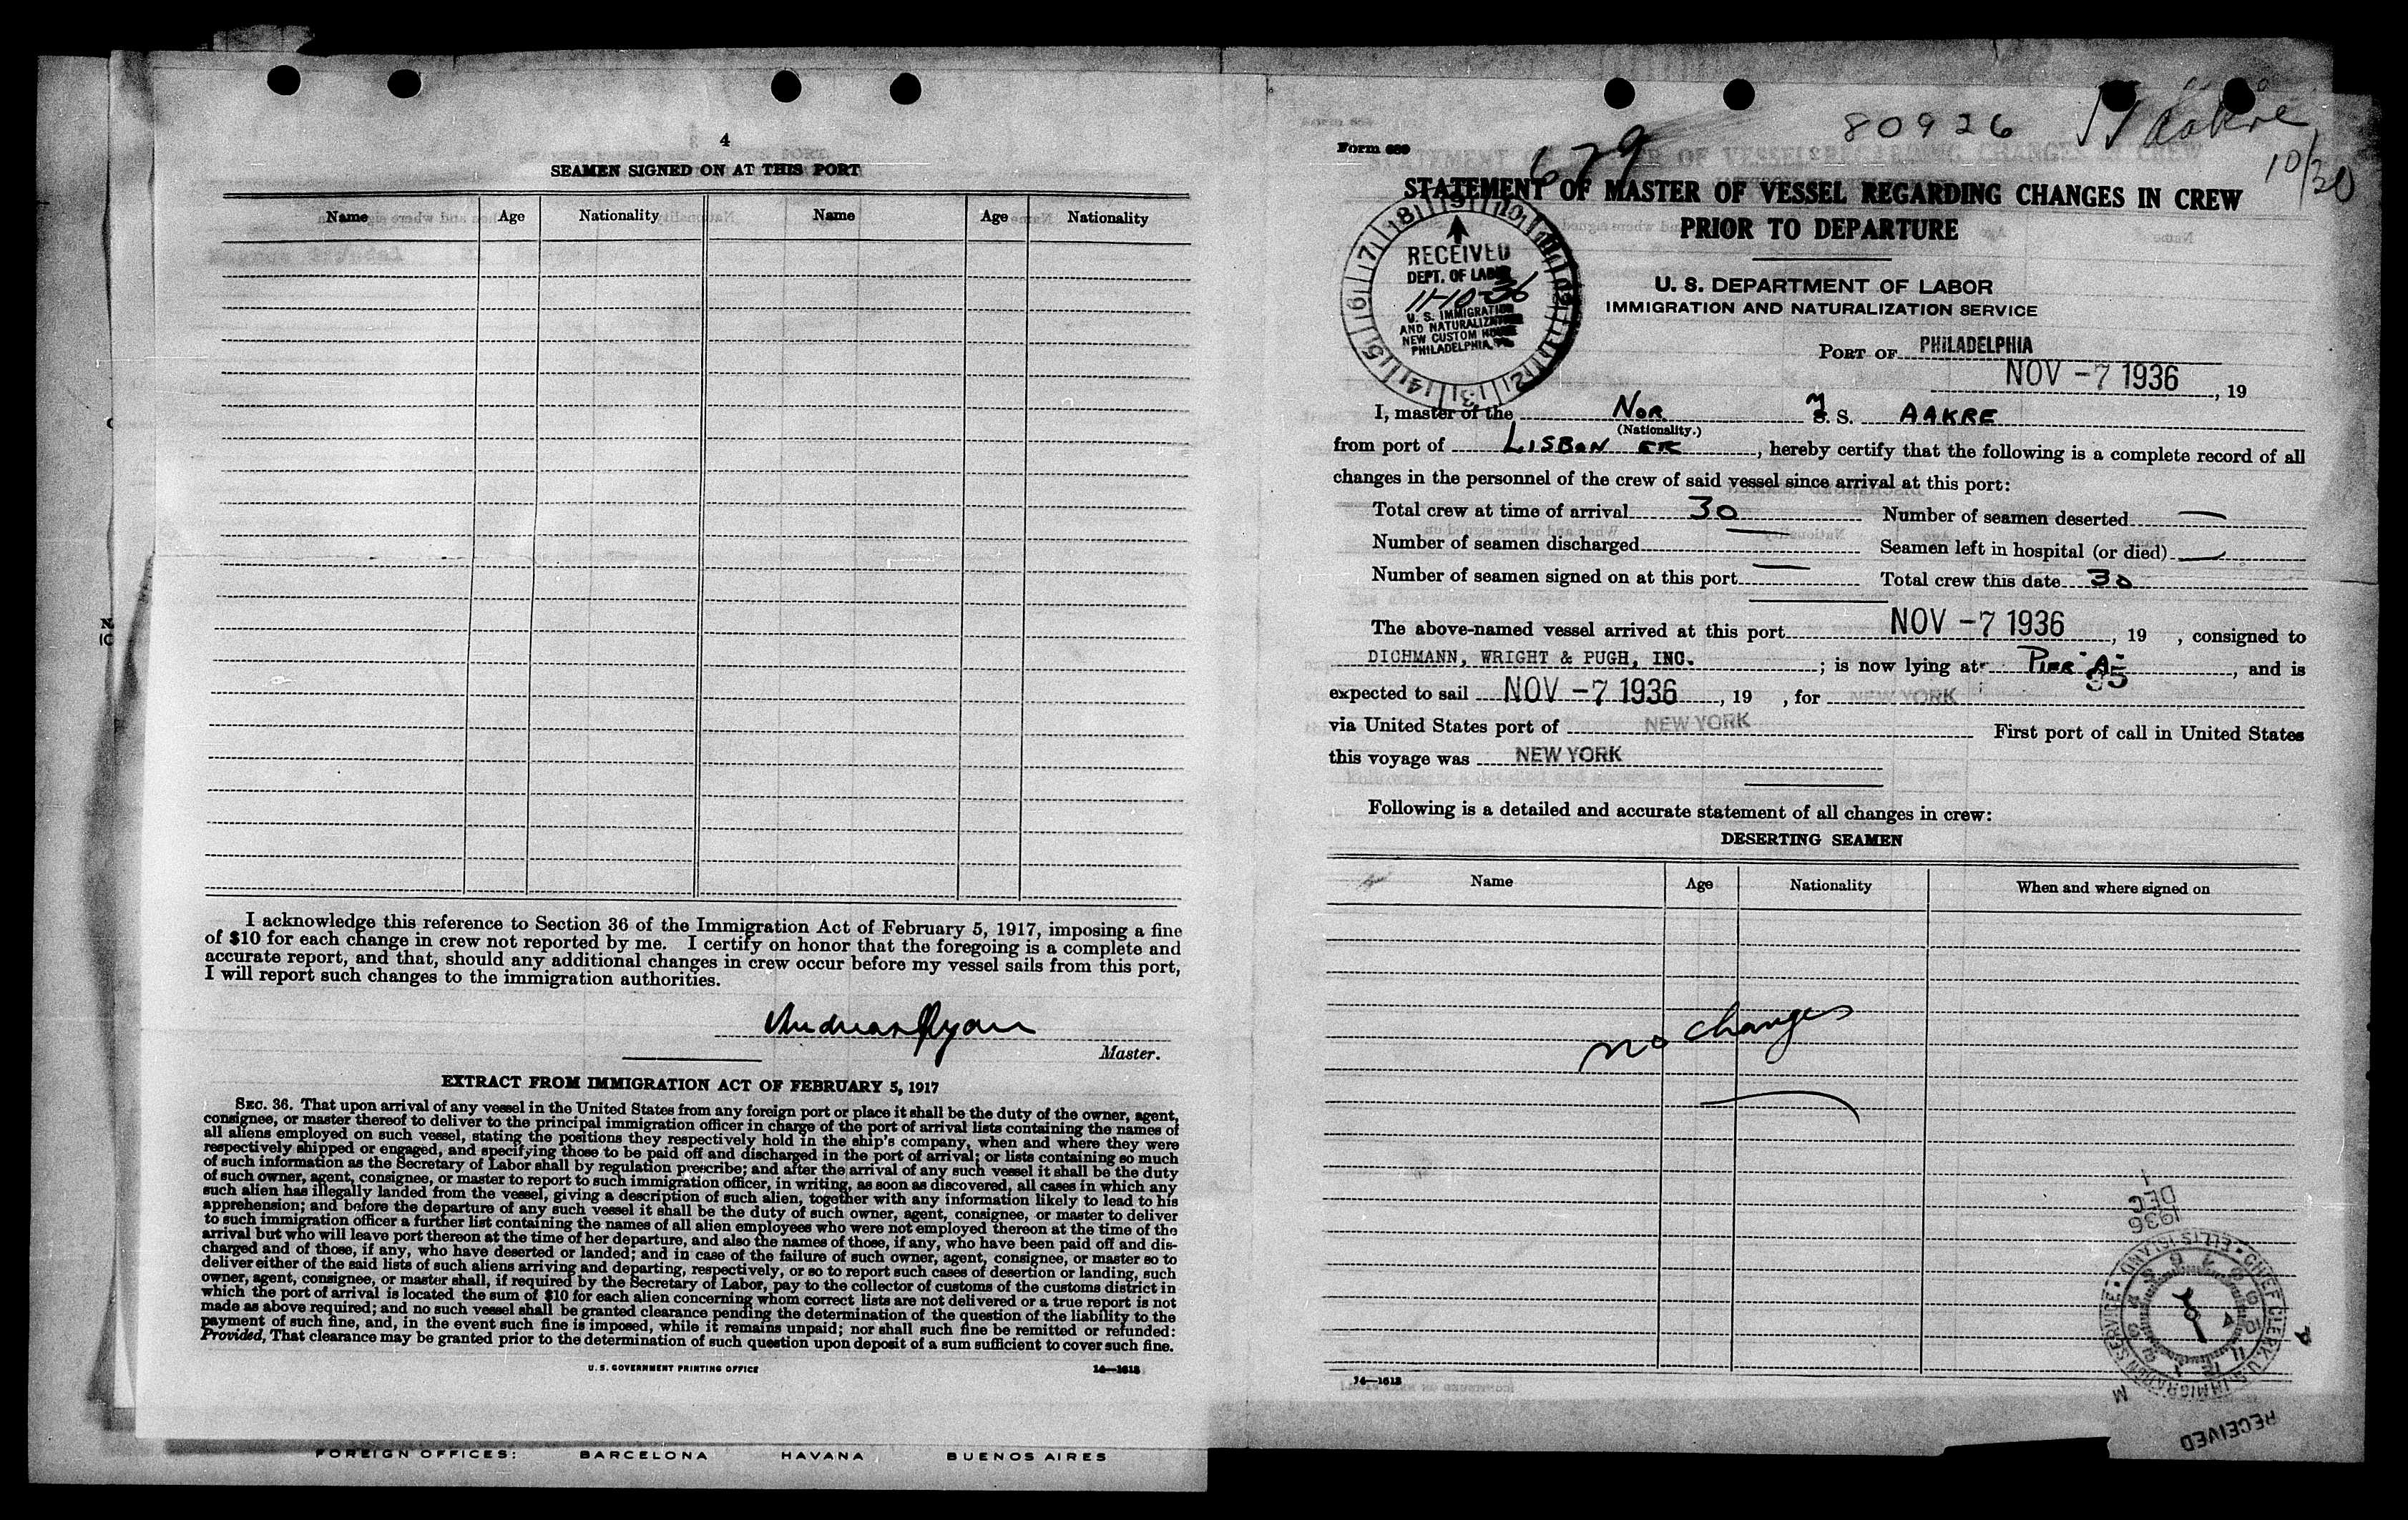 4
SEAMEN SIGNED ON AT THIS PORT
Name Age Nationality Name Age Nationality
I acknowledge this reference to Section 36 of the Immigration Act of February 5, 1917, imposing a fine
of $10 for each change in crew not reported by me. I certify on honor that the foregoing is a complete and
accurate report, and that, should any additional changes in crew occur before my vessel sails from this port,
I will report such changes to the immigration authorities.
Master.
EXTRACT FROM IMMIGRATION ACT OF FEBRUARY 5, 1917
SEC. 36. That upon arrival of any vessel in the United States from any foreign port or place it shall be the duty of the owner, agent,
consignee, or master thereof to deliver to the principal immigration officer in charge of the port of arrival lists containing the names of
all aliens employed on such vessel, stating the positions they respectively hold in the ship's company, when and where they were
respectively shipped or engaged, and specifying those to be paid off and discharged in the port of arrival; or lists containing so much
of such information as the Secretary of Labor shall by regulation prescribe; and after the arrival of any such vessel it shall be the duty
of such owner, agent, consignee, or master to report to such immigration officer, in writing, as soon as discovered, all cases in which any
such alien has illegally landed from the vessel, giving a description of such alien, together with any information likely to lead to his
apprehension; and before the departure of any such vessel it shall be the duty of such owner, agent, consignee, or master to deliver
to such immigration officer a further list containing the names of all alien employees who were not employed thereon at the time of the
arrival but who will leave port thereon at the time of her departure, and also the names of those, if any, who have been paid off and dis-
charged and of those, if any, who have deserted or landed; and in case of the failure of such owner, agent, consignee, or master so to
deliver either of the said lists of such aliens arriving and departing, respectively, or so to report such cases of desertion or landing, such
owner, agent, consignee, or master shall, if required by the Secretary of Labor, pay to the collector of customs of the customs district in
which the port of arrival is located the sum of $10 for each alien concerning whom correct lists are not delivered or a true report is not
made as above required; and no such vessel shall be granted clearance pending the determination of the question of the liability to the
payment of such fine, and, in the event such fine is imposed, while it remains unpaid; nor shall such fine be remitted or refunded:
Provided, That clearance may be granted prior to the determination of such question upon deposit of a sum sufficient to cover such fine.
U. S. GOVERNMENT PRINTING OFFICE 14—1613
FOREIGN OFFICES: BARCELONA HAVANA BUENOS AIRES
80926 Aakre
10/20
Form 680
679
STATEMENT OF MASTER OF VESSEL REGARDING CHANGES IN CREW
PRIOR TO DEPARTURE
RECEIVED
DEPT. OF LABOR
11-10-36
U. S. IMMIGRATION
AND NATURALIZATION
NEW CUSTOM HOUSE
PHILADELPHIA, PA
U. S. DEPARTMENT OF LABOR
IMMIGRATION AND NATURALIZATION SERVICE
PORT OF PHILADELPHIA
NOV -7 1936, 19
I, master of the NOR M S. AAKRE
(Nationality.)
from port of LISBON ER, hereby certify that the following is a complete record of all
changes in the personnel of the crew of said vessel since arrival at this port:
Total crew at time of arrival 30 Number of seamen deserted —
Number of seamen discharged — Seamen left in hospital (or died) —
Number of seamen signed on at this port — Total crew this date 30
The above-named vessel arrived at this port NOV -7 1936, 19 , consigned to
DICHMANN, WRIGHT & PUGH, INC. ; is now lying at PIER "A" 35, and is
expected to sail NOV -7 1936, 19 , for NEW YORK
via United States port of NEW YORK First port of call in United States
this voyage was NEW YORK
Following is a detailed and accurate statement of all changes in crew:
DESERTING SEAMEN
Name Age Nationality When and where signed on
no changes
1936
DEC
1
CHIEF CLERK U.S. IMMIGRATION SERVICE • ELLIS ISLAND •
RECEIVED
14—1613